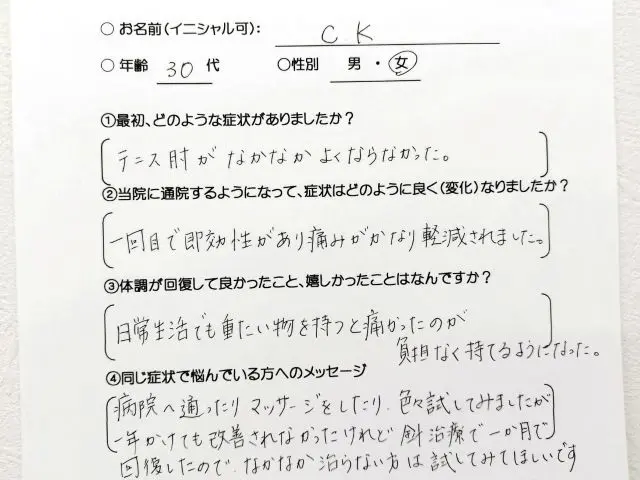 ○ お名前(イニシャル可): C.K
○ 年齢 30 代 ○性別 男 ・ 女
①最初、どのような症状がありましたか？
テニス肘が なかなか よくならなかった。
②当院に通院するようになって、症状はどのように良く(変化)なりましたか？
一回目で即効性があり痛みがかなり軽減されました。
③体調が回復して良かったこと、嬉しかったことはなんですか？
日常生活でも重たい物を持つと痛かったのが
負担なく持てるようになった。
④同じ症状で悩んでいる方へのメッセージ
病院へ通ったり マッサージをしたり、色々試してみましたが
一年かけても改善されなかったけれど 斜治療で一か月で
回復したので、なかなか治らない方は試してみてほしいです